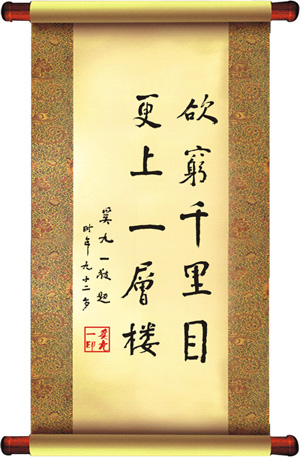 欲窮千里目
更上一層楼
奚九一敬题
时年九十二岁
奚九
一印